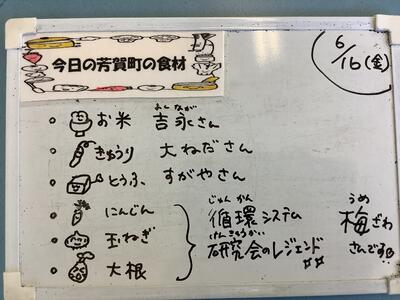 今日の芳賀町の食材
6/16(金)
お米 よしなが 吉永さん
きゅうり 大ねださん
とうふ すがやさん
にんじん
玉ねぎ
大根
じゅんかん
循環システム
けんきゅうかい
研究会のレジェンド
うめ
梅ざわ
さんです